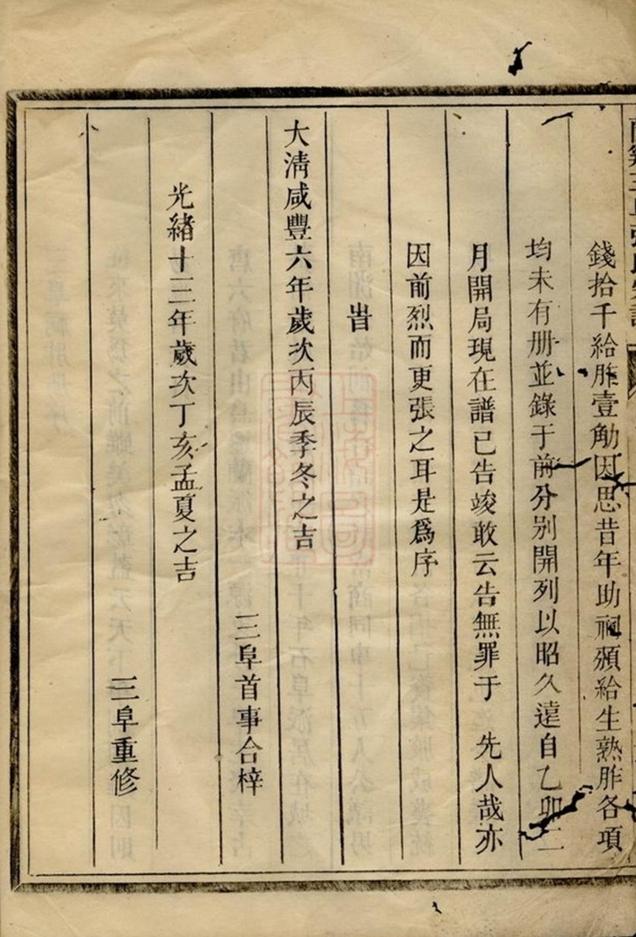 錢拾千給胙壹觔因思昔年助祠頒給生熟胙各項
均未有册並錄于前分别開列以昭久遠自乙卯二
月開局現在譜已告竣敢云告無罪于 先人哉亦
因前烈而更張之耳是爲序
旹
大清咸豐六年歲次丙辰季冬之吉
三阜首事合梓
光緒十三年歲次丁亥孟夏之吉
三阜重修